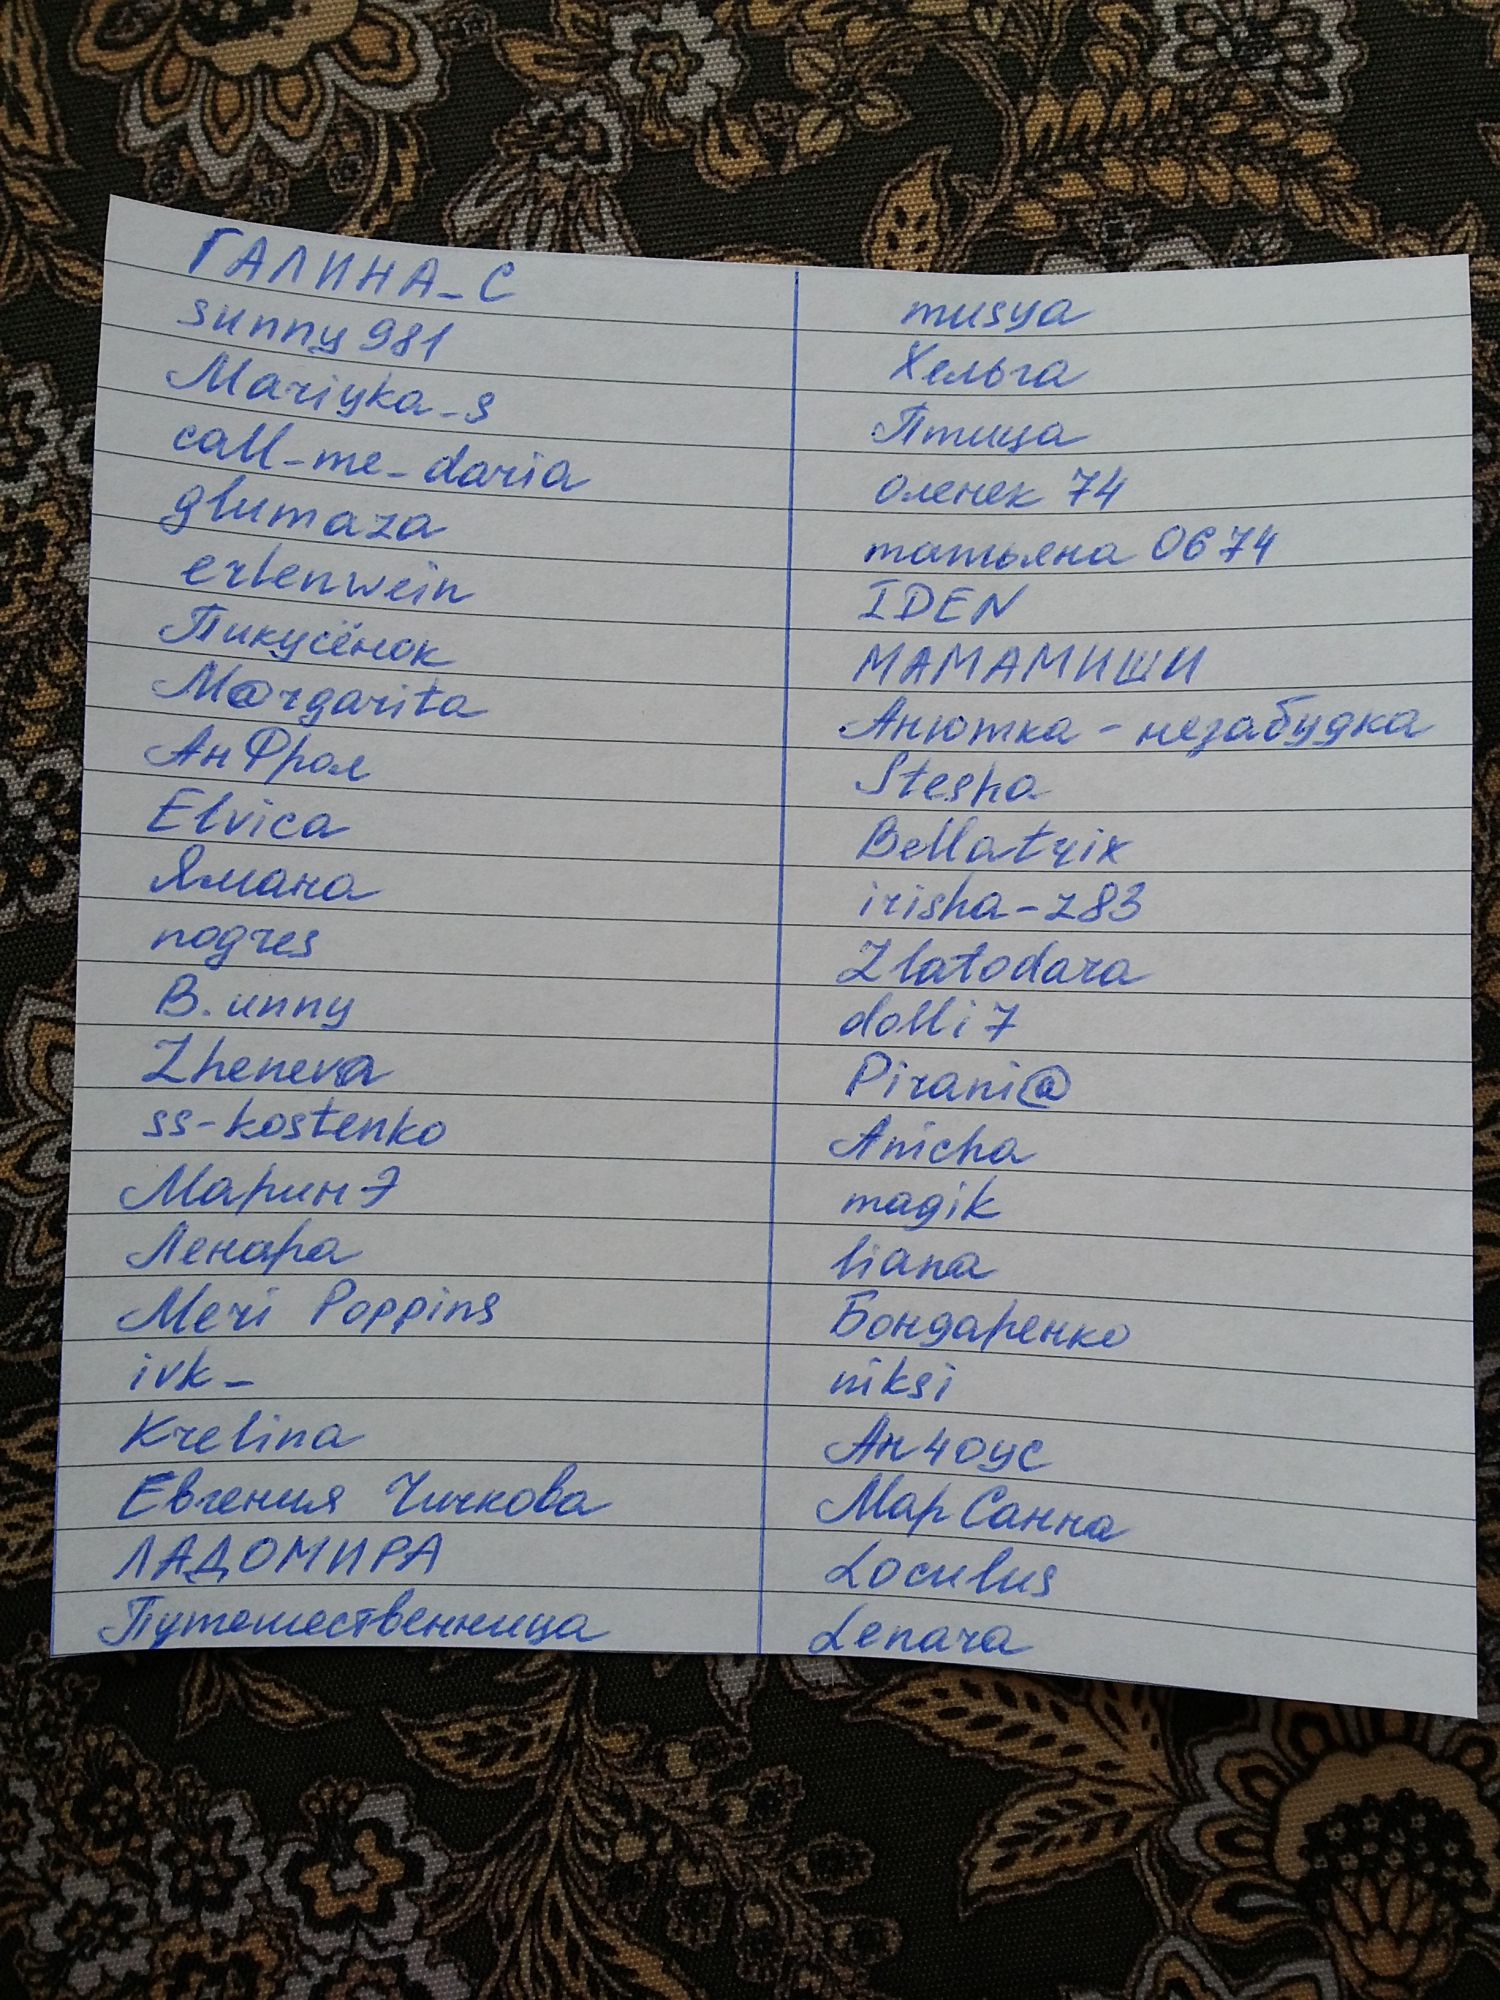 ГАЛИНА_С
sunny981
Mariyka_s
call_me_daria
glumaza
erlenwein
Пикусёнок
M@rgarita
АнФрол
Elvica
Ямана
nogres
B.unny
Zheneva
ss-kostenko
МаринЭ
Ленара
Meri Poppins
ivk_
Krelina
Евгения Чичкова
ЛАДОМИРА
Путешественница
musya
Хельга
Птица
оленек 74
татьяна 0674
IDEN
МАМАМИШИ
Анютка - незабудка
Stesha
Bellatrix
irisha-z83
Zlatodara
dolli7
Pirani@
Anicha
magik
liana
Бондаренко
niksi
Ан4оус
МарСанна
Loculus
Lenara